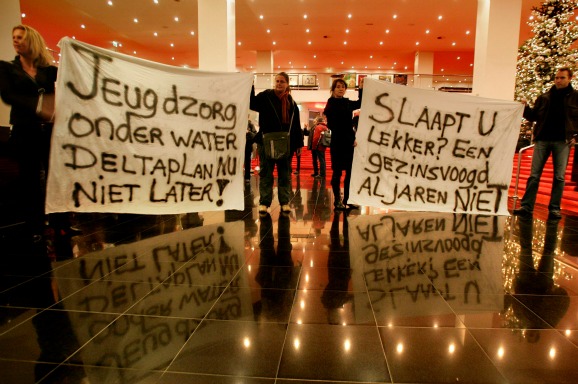 JEUgdzorg
ondER WATER
DELTAPLAN NU
NiET LATER!
SLAAPT U
LEKKER? EEN
gEZiNSVoogd
AL JAREN NiET